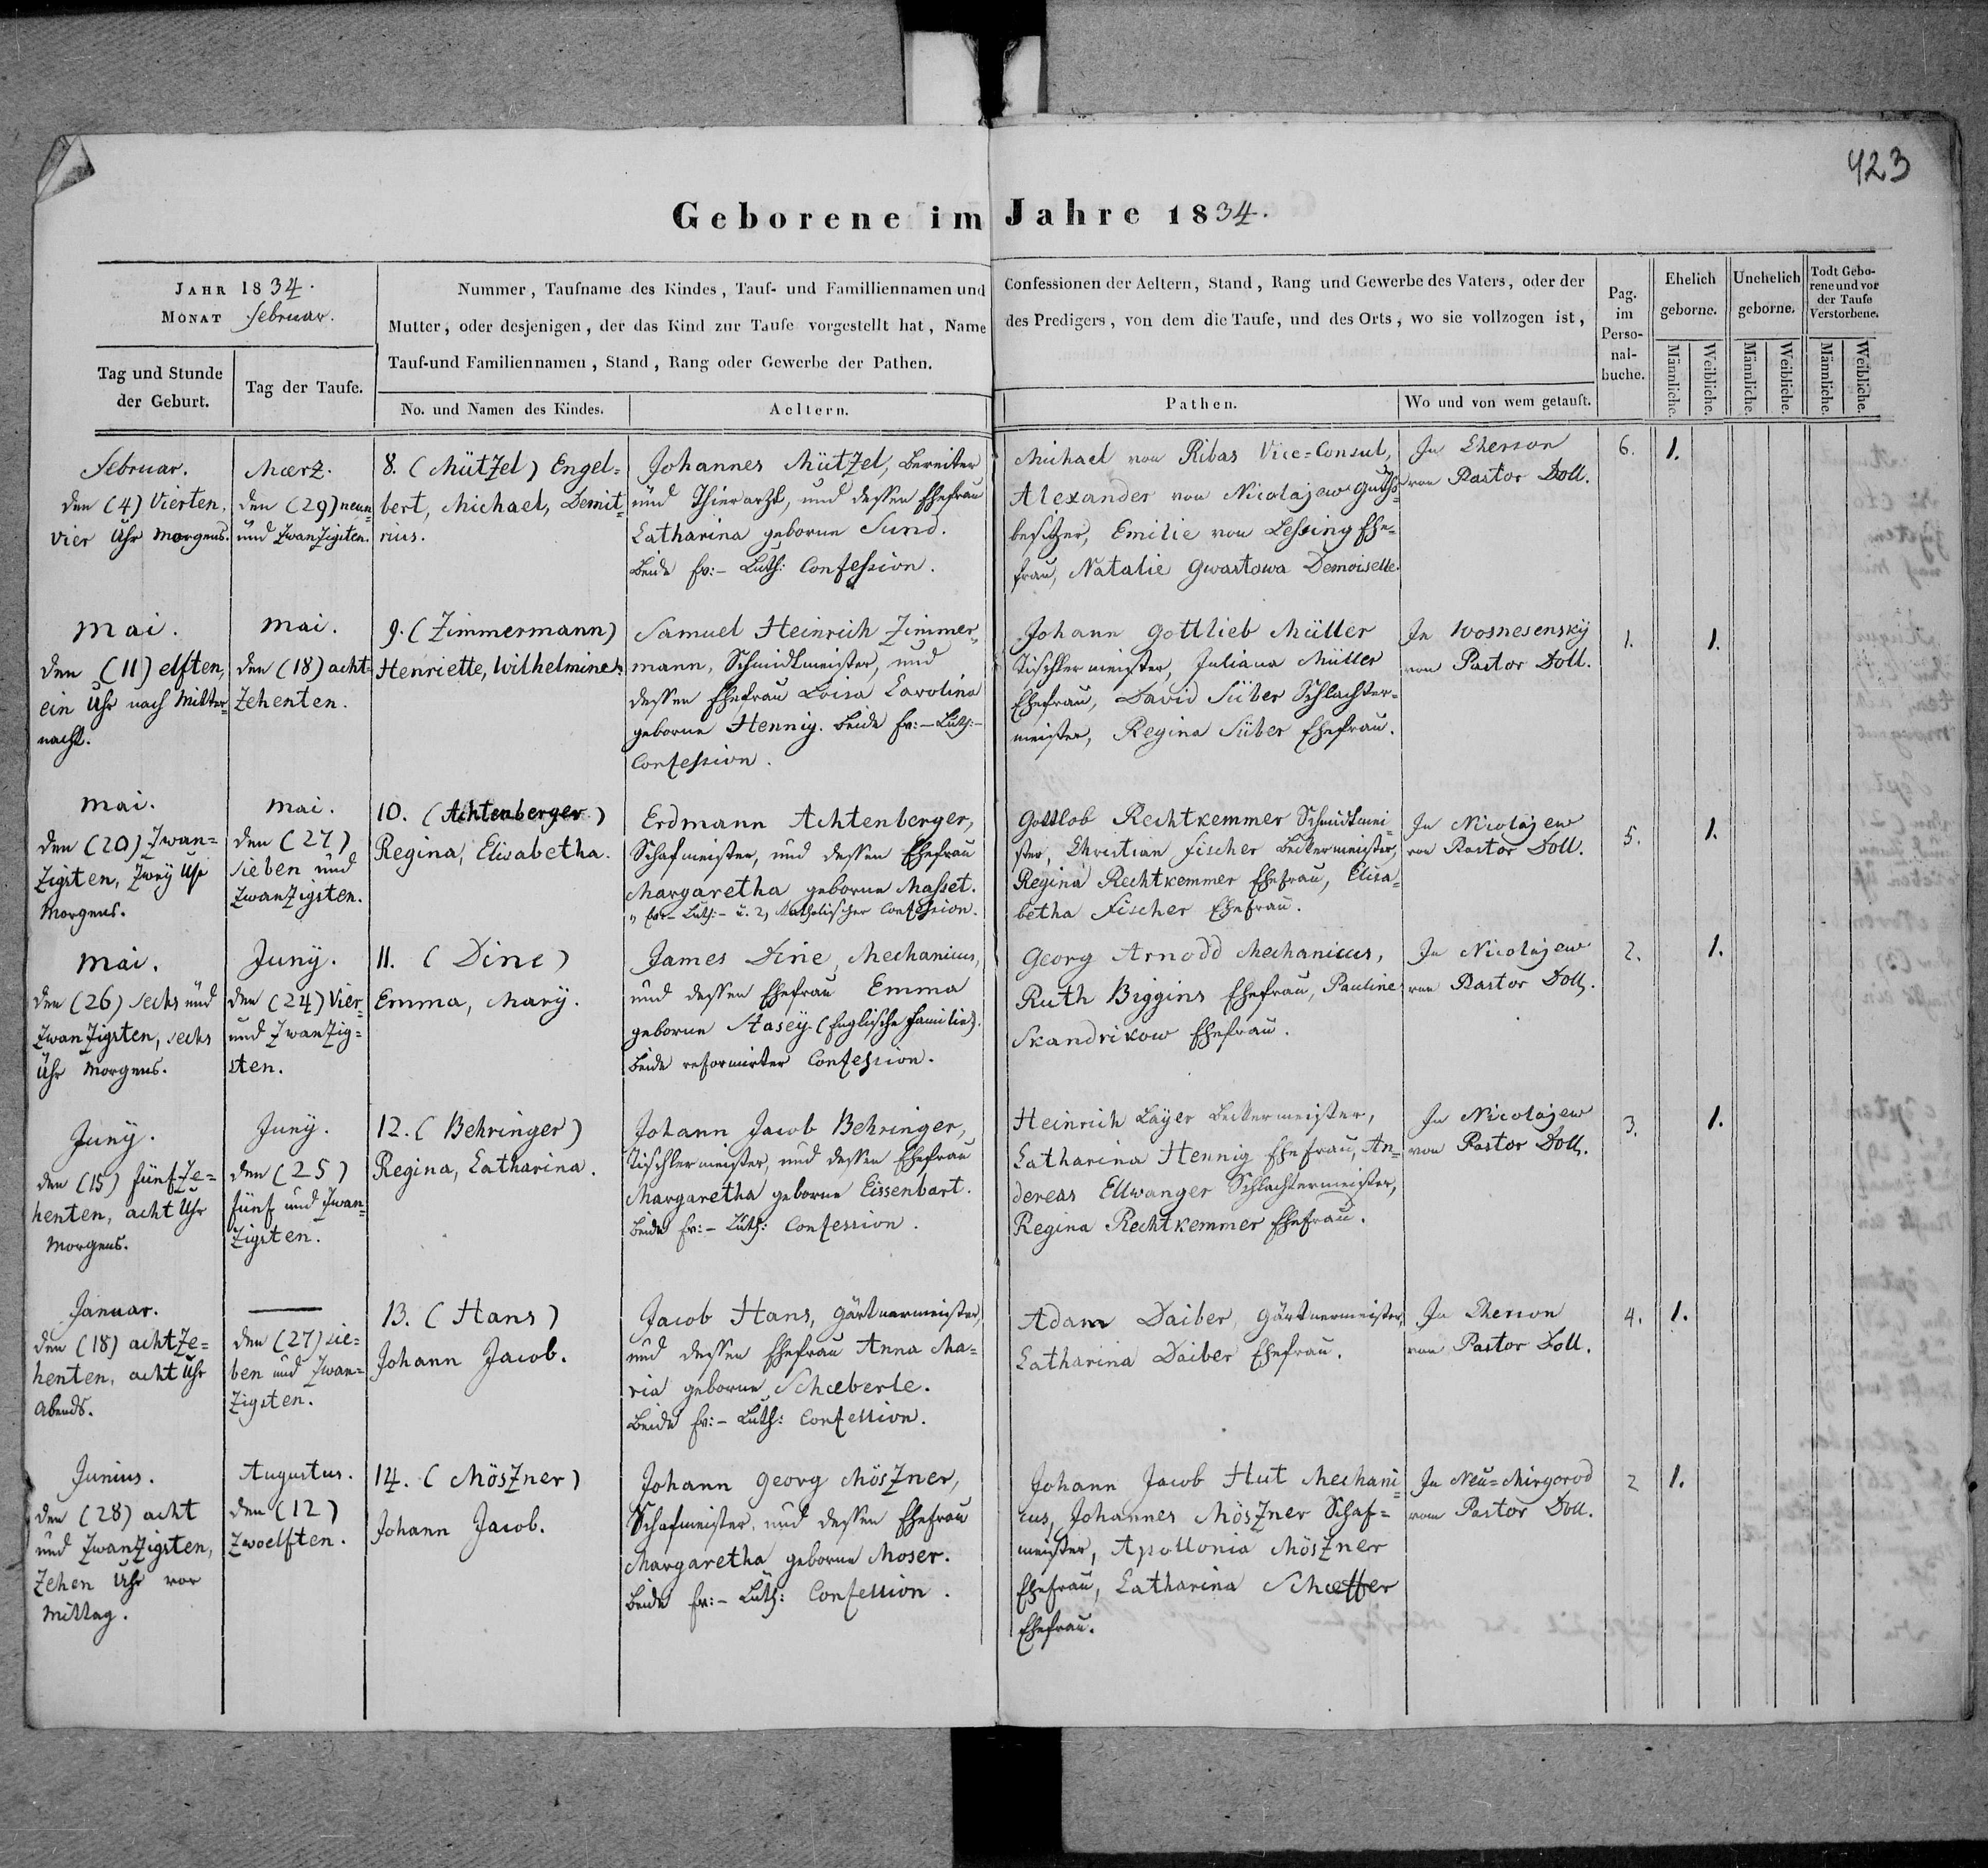 423
Geborene im Jahre 1834.
JAHR 1834.
MONAT Februar.
Tag und Stunde
der Geburt.
Tag der Taufe.
Nummer, Taufname des Kindes, Tauf- und Familliennamen und
Mutter, oder desjenigen, der das Kind zur Taufe vorgestellt hat, Name
Tauf-und Familiennamen, Stand, Rang oder Gewerbe der Pathen.
No. und Namen des Kindes.
Aeltern.
Confessionen der Aeltern, Stand, Rang und Gewerbe des Vaters, oder der
des Predigers, von dem die Taufe, und des Orts, wo sie vollzogen ist,
Pathen.
Wo und von wem getauft.
Pag.
im
Perso-
nal-
buche.
Ehelich
geborne.
Unehelich
geborne.
Todt Gebo-
rene und vor
der Taufe
Verstorbene.
Männliche.
Weibliche.
Männliche.
Weibliche.
Männliche.
Weibliche.
Februar.
den (4) Vierten,
vier Uhr Morgens.
Maerz.
den (29) neun=
und Zwanzigsten.
8. (Mützel) Engel=
bert, Michael, Demit=
rius.
Johannes Mützel, Bereiter
und Thierarzt, und dessen Ehefrau
Catharina geborne Sund.
Beide Ev:- Luth: Confession.
Michael von Ribas Vice=Consul,
Alexander von Nicolajew Guths=
besitzer, Emilie von Lessing Ehe=
frau, Natalie Gwastowa Demoiselle.
In Cherson
von Pastor Doll.
6.
1.
Mai.
den (11) elften,
ein Uhr nach Mitter=
nacht.
Mai.
den (18) acht=
Zehenten.
9. (Zimmermann)
Henriette, Wilhelmine.
Samuel Heinrich Zimmer=
mann, Schmidtmeister, und
dessen Ehefrau Loisa Carolina
geborne Hennig. Beide Ev:-Luth:-
Confession.
Johann Gottlieb Müller
Tischlermeister, Juliana Müller
Ehefrau, David Süber Schlachter=
meister, Regina Süber Ehefrau.
In Wosnesenskÿ
von Pastor Doll.
1.
1.
Mai.
den (20) Zwan=
Zigsten, Zweÿ Uhr
Morgens.
Mai.
den (27)
sieben und
Zwanzigsten.
10. (Achtenberger)
Regina, Elisabetha.
Erdmann Achtenberger,
Schafmeister, und dessen Ehefrau
Margaretha geborne Masset.
Ev:- Luth:- u. 2, Katholischer Confession.
Gottlob Rechtkemmer Schmidtmei=
ster, Christian Fischer Beckermeister,
Regina Rechtkemmer Ehefrau, Elisa=
betha Fischer Ehefrau.
In Nicolajew
von Pastor Doll.
5.
1.
Mai.
den (26) sechs und
Zwanzigsten, sechs
Uhr Morgens.
Junÿ.
den (24) Vier=
und Zwanzig=
sten.
11. (Dine)
Emma, Marÿ.
James Dine, Mechanicus,
und dessen Ehefrau Emma
geborne Stasey. (Englische Familie).
Beide reformirter Confession.
Georg Arnodd Mechanicus,
Ruth Biggins Ehefrau, Pauline
Skandrikow Ehefrau.
In Nicolajew
von Pastor Doll.
2.
1.
Junÿ.
den (15) fünfze=
henten, acht Uhr
Morgens.
Junÿ.
den (25)
fünf und Zwan=
Zigsten.
12. (Behringer)
Regina, Catharina.
Johann Jacob Behringer,
Tischlermeister, und dessen Ehefrau
Margaretha geborne Eissenbart.
Beide Ev:- Luth: Confession.
Heinrich Layer Beckermeister,
Catharina Hennig Ehefrau, An=
dereas Ellwanger Schlachtermeister,
Regina Rechtkemmer Ehefrau.
In Nicolajew
von Pastor Doll.
3.
1.
Januar.
den (18) achtze=
henten, acht Uhr
Abends.
den (27) sie=
ben und Zwan=
Zigsten.
13. (Hans)
Johann Jacob.
Jacob Hans, Gärtnermeister,
und dessen Ehefrau Anna Ma=
ria geborne Schaeberle.
Beide Ev:- Luth: Confession.
Adam Daiber, Gärtnermeister,
Catharina Daiber Ehefrau.
In Cherson
von Pastor Doll.
4.
1.
Junius.
den (28) acht
und Zwanzigsten,
Zehen Uhr vor
Mittag.
Augustus.
den (12)
Zwoelften.
14. (Möszner)
Johann Jacob.
Johann Georg Möszner,
Schafmeister, und dessen Ehefrau
Margaretha geborne Moser.
Beide Ev:- Luth: Confession.
Johann Jacob Hut Mechani=
cus, Johannes Möszner Schaf=
meister, Apollonia Möszner
Ehefrau, Catharina Schaeffer
Ehefrau.
In Neu=Mirgorod
vom Pastor Doll.
2
1.